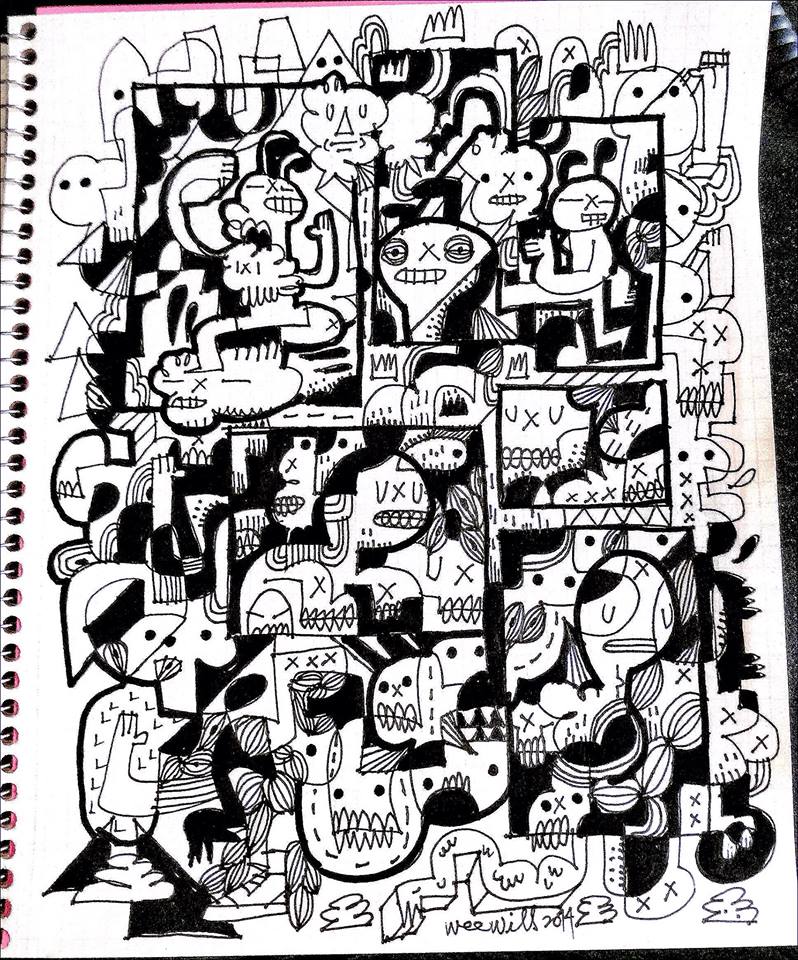 weewills 2014